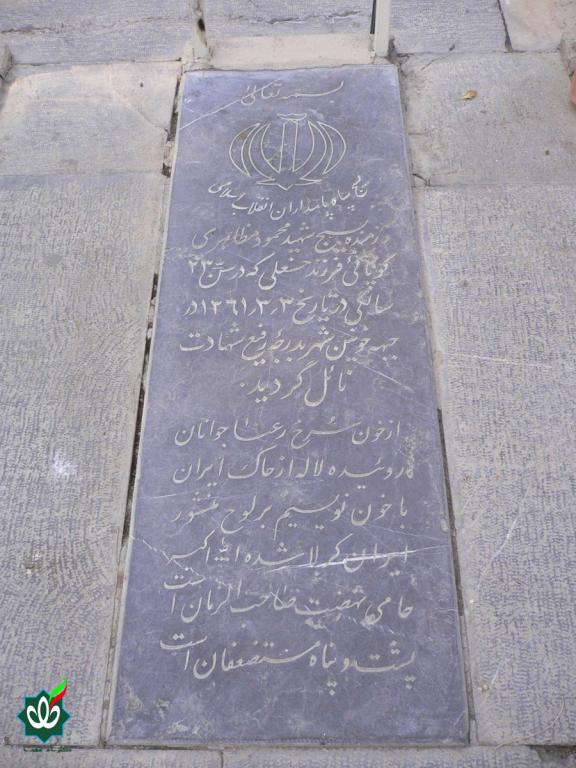 بسمه تعالی
سپاه پاسداران انقلاب اسلامی
رزمنده بسیج شهید محمود مظاهری
کوپائی فرزند حسنعلی که در سن ۲۳
سالگی در تاریخ ۱۳۶۱٫۳٫۳ در
جبهه خونین شهر بدرجه رفیع شهادت
نائل گردید.
از خون سرخ رعنا جوانان
روئیده لاله از خاک ایران
با خون نویسیم بر لوح منشور
ایران کربلا شده الله اکبر
حامی نهضت صاحب الزمان است
پشت و پناه مستضعفان است